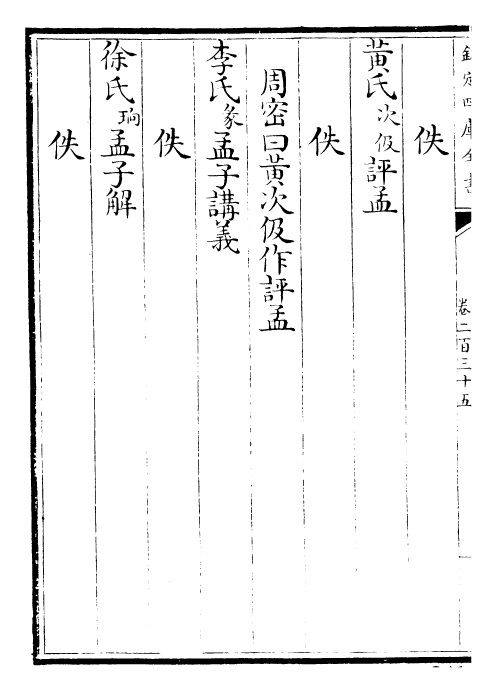 欽定四庫全書
卷二百三十五
佚
黃氏次伋評孟
佚
周密曰黃次伋作評孟
李氏彖孟子講義
佚
徐氏珦孟子解
佚